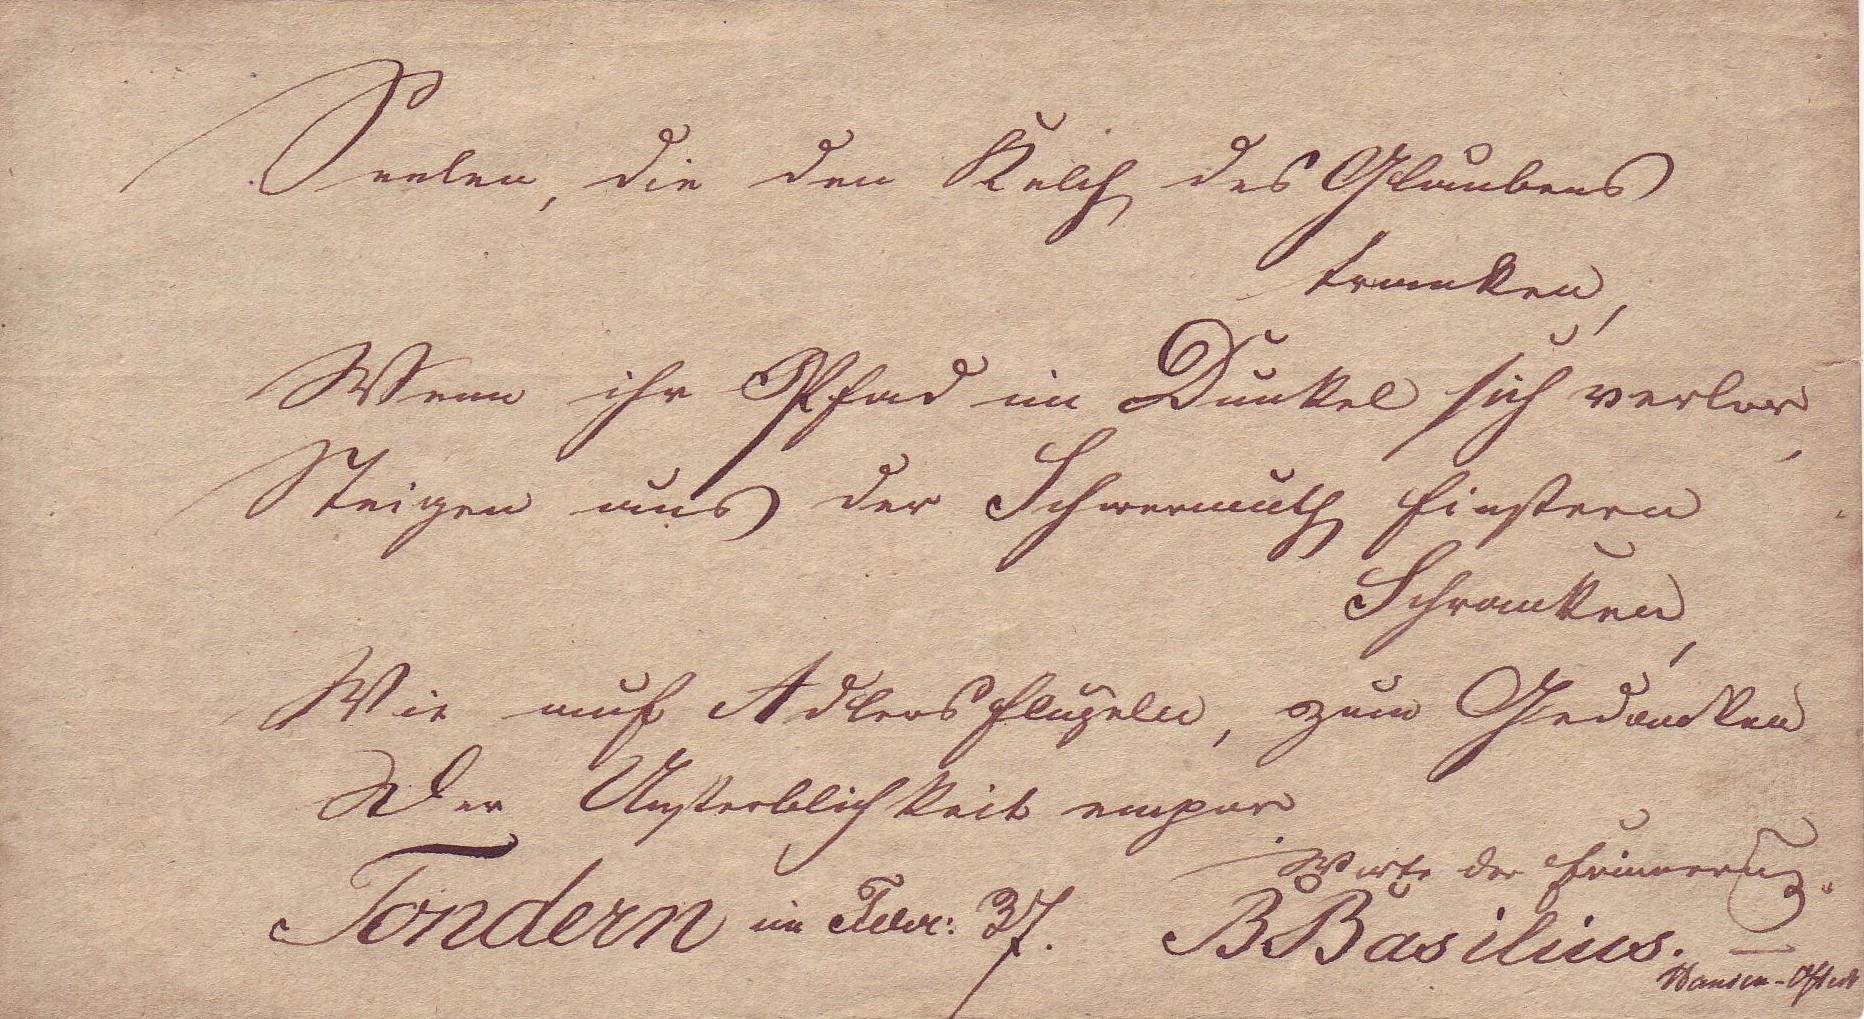 Seelen, die den Kelch des Glaubens
tranken,
Wenn ihr Pfad im Dunkel sich verlor,
Steigen aus der Schwermuth finstern
Schranken,
Wie auf Adlersflügeln, zum Gedanken
Der Unsterblichkeit empor
Worte der Erinnerung.
Tondern im Febr: 37. B Basilius.
Hansen-